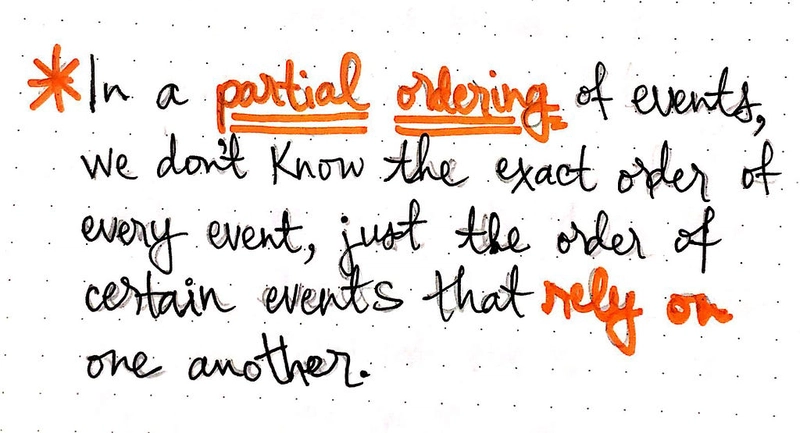 *In a partial ordering of events,
we don't know the exact order of
every event, just the order of
certain events that rely on
one another.